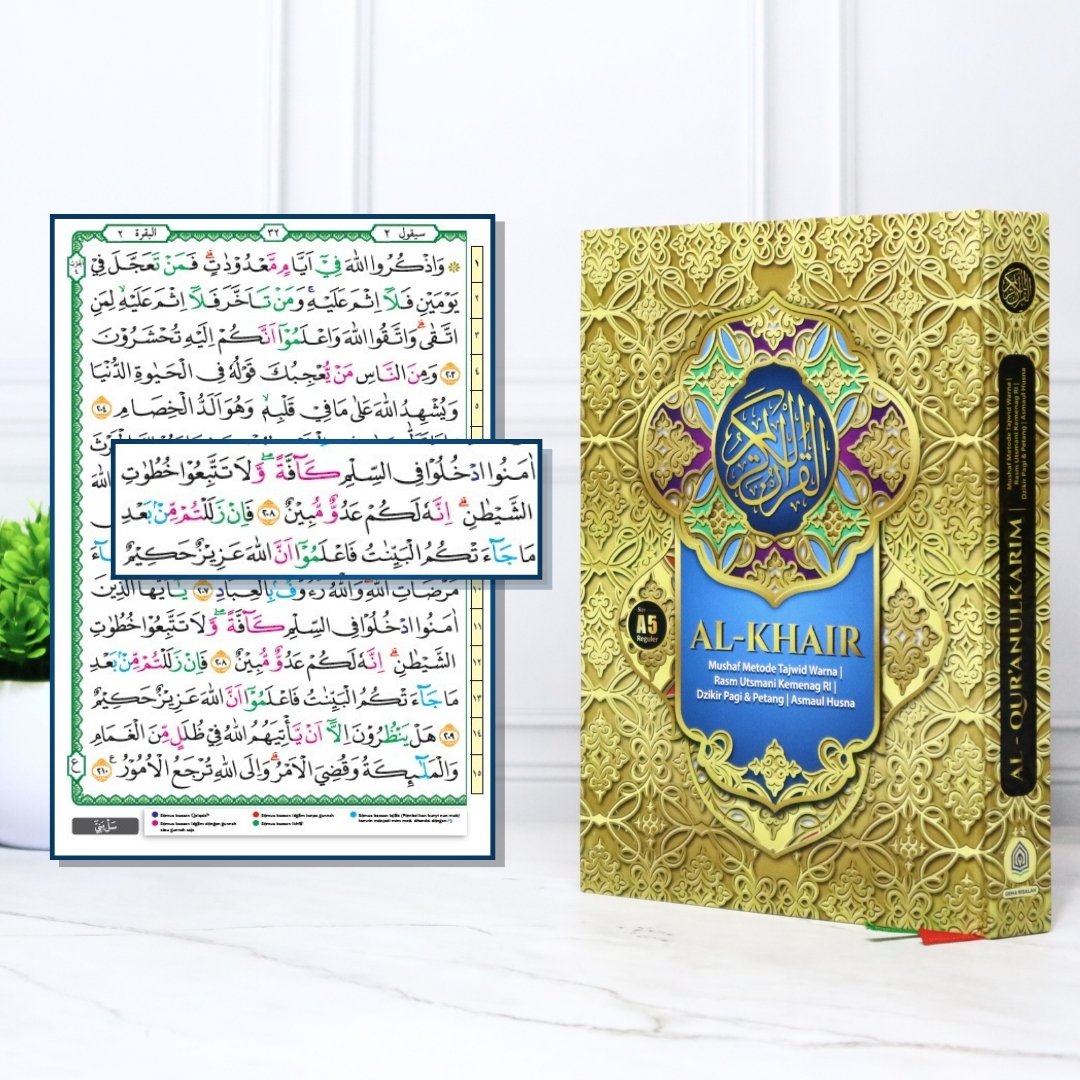 البقرة ٢
٣٢
سيقول ٢
وَاذْكُرُوا اللّٰهَ فِيْٓ اَيَّامٍ مَّعْدُوْدٰتٍۗ فَمَنْ تَعَجَّلَ فِيْ
يَوْمَيْنِ فَلَآ اِثْمَ عَلَيْهِۚ وَمَنْ تَاَخَّرَ فَلَآ اِثْمَ عَلَيْهِۙ لِمَنِ
اتَّقٰىۗ وَاتَّقُوا اللّٰهَ وَاعْلَمُوْٓا اَنَّكُمْ اِلَيْهِ تُحْشَرُوْنَ
٢٠٣ وَمِنَ النَّاسِ مَنْ يُّعْجِبُكَ قَوْلُهٗ فِى الْحَيٰوةِ الدُّنْيَا
وَيُشْهِدُ اللّٰهَ عَلٰى مَا فِيْ قَلْبِهٖۙ وَهُوَ اَلَدُّ الْخِصَامِ ٢٠٤
اٰمَنُوا ادْخُلُوْا فِى السِّلْمِ كَاۤفَّةًۖ وَّلَا تَتَّبِعُوْا خُطُوٰتِ
الشَّيْطٰنِۗ اِنَّهٗ لَكُمْ عَدُوٌّ مُّبِيْنٌ ٢٠٨ فَاِنْ زَلَلْتُمْ مِّنْۢ بَعْدِ
مَا جَاۤءَتْكُمُ الْبَيِّنٰتُ فَاعْلَمُوْٓا اَنَّ اللّٰهَ عَزِيْزٌ حَكِيْمٌ
مَرْضَاتِ اللّٰهِۗ وَاللّٰهُ رَءُوْفٌۢ بِالْعِبَادِ ٢٠٧ يٰٓاَيُّهَا الَّذِيْنَ
اٰمَنُوا ادْخُلُوْا فِى السِّلْمِ كَاۤفَّةًۖ وَّلَا تَتَّبِعُوْا خُطُوٰتِ
الشَّيْطٰنِۗ اِنَّهٗ لَكُمْ عَدُوٌّ مُّبِيْنٌ ٢٠٨ فَاِنْ زَلَلْتُمْ مِّنْۢ بَعْدِ
مَا جَاۤءَتْكُمُ الْبَيِّنٰتُ فَاعْلَمُوْٓا اَنَّ اللّٰهَ عَزِيْزٌ حَكِيْمٌ
٢٠٩ هَلْ يَنْظُرُوْنَ اِلَّآ اَنْ يَّأْتِيَهُمُ اللّٰهُ فِيْ ظُلَلٍ مِّنَ الْغَمَامِ
وَالْمَلٰۤىِٕكَةُ وَقُضِيَ الْاَمْرُۗ وَاِلَى اللّٰهِ تُرْجَعُ الْاُمُوْرُ ٢١٠
القرآن الكريم
Size
A5
Reguler
AL-KHAIR
Mushaf Metode Tajwid Warna |
Rasm Utsmani Kemenag RI |
Dzikir Pagi & Petang | Asmaul Husna
القرآن الكريم
AL - QUR'ANULKARIM |
Mushaf Metode Tajwid Warna |
Rasm Utsmani Kemenag RI |
Dzikir Pagi & Petang | Asmaul Husna
GEMA RISALAH